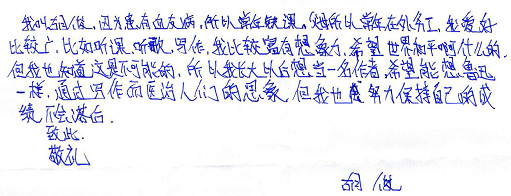 我叫胡俊，因为患有血友病，所以常年缺课，妈所以常年在外打工，我爱好
比较广，比如听课、听歌、写作，我比较富有想象力，希望世界和平啊什么的，
但我也知道这是不可能的，所以我长大以后想当一名作者，希望能想鲁迅
一样，通过写作而医治人们的思象，但我也度努力保持自己的成
绩不会落后。
致此
敬礼
胡俊